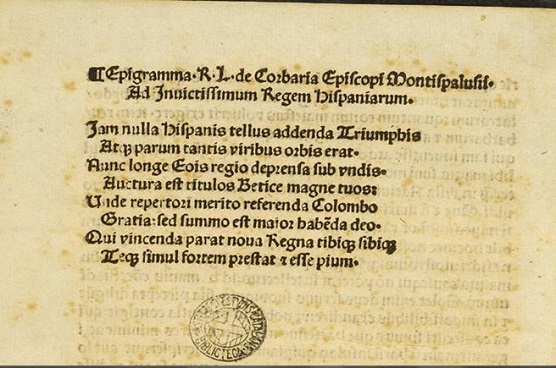 ¶ Epigramma· R· L· de Corbaria Episcopi Montispalusii·
Ad Inuictissimum Regem Hispaniarum·
Jam nulla Hispanis tellus addenda Triumphis
Atqꝫ parum tantis viribus orbis erat·
Nunc longe Eois regio deprensa sub vndis·
Auctura est titulos Betice magne tuos:
Unde repertori merito referenda Colombo
Gratia: sed summo est maior habēda deo·
Qui vincenda parat noua Regna tibiqꝫ sibiqꝫ
Teqꝫ simul fortem prestat ⁊ esse pium·
BIBLIOTECA